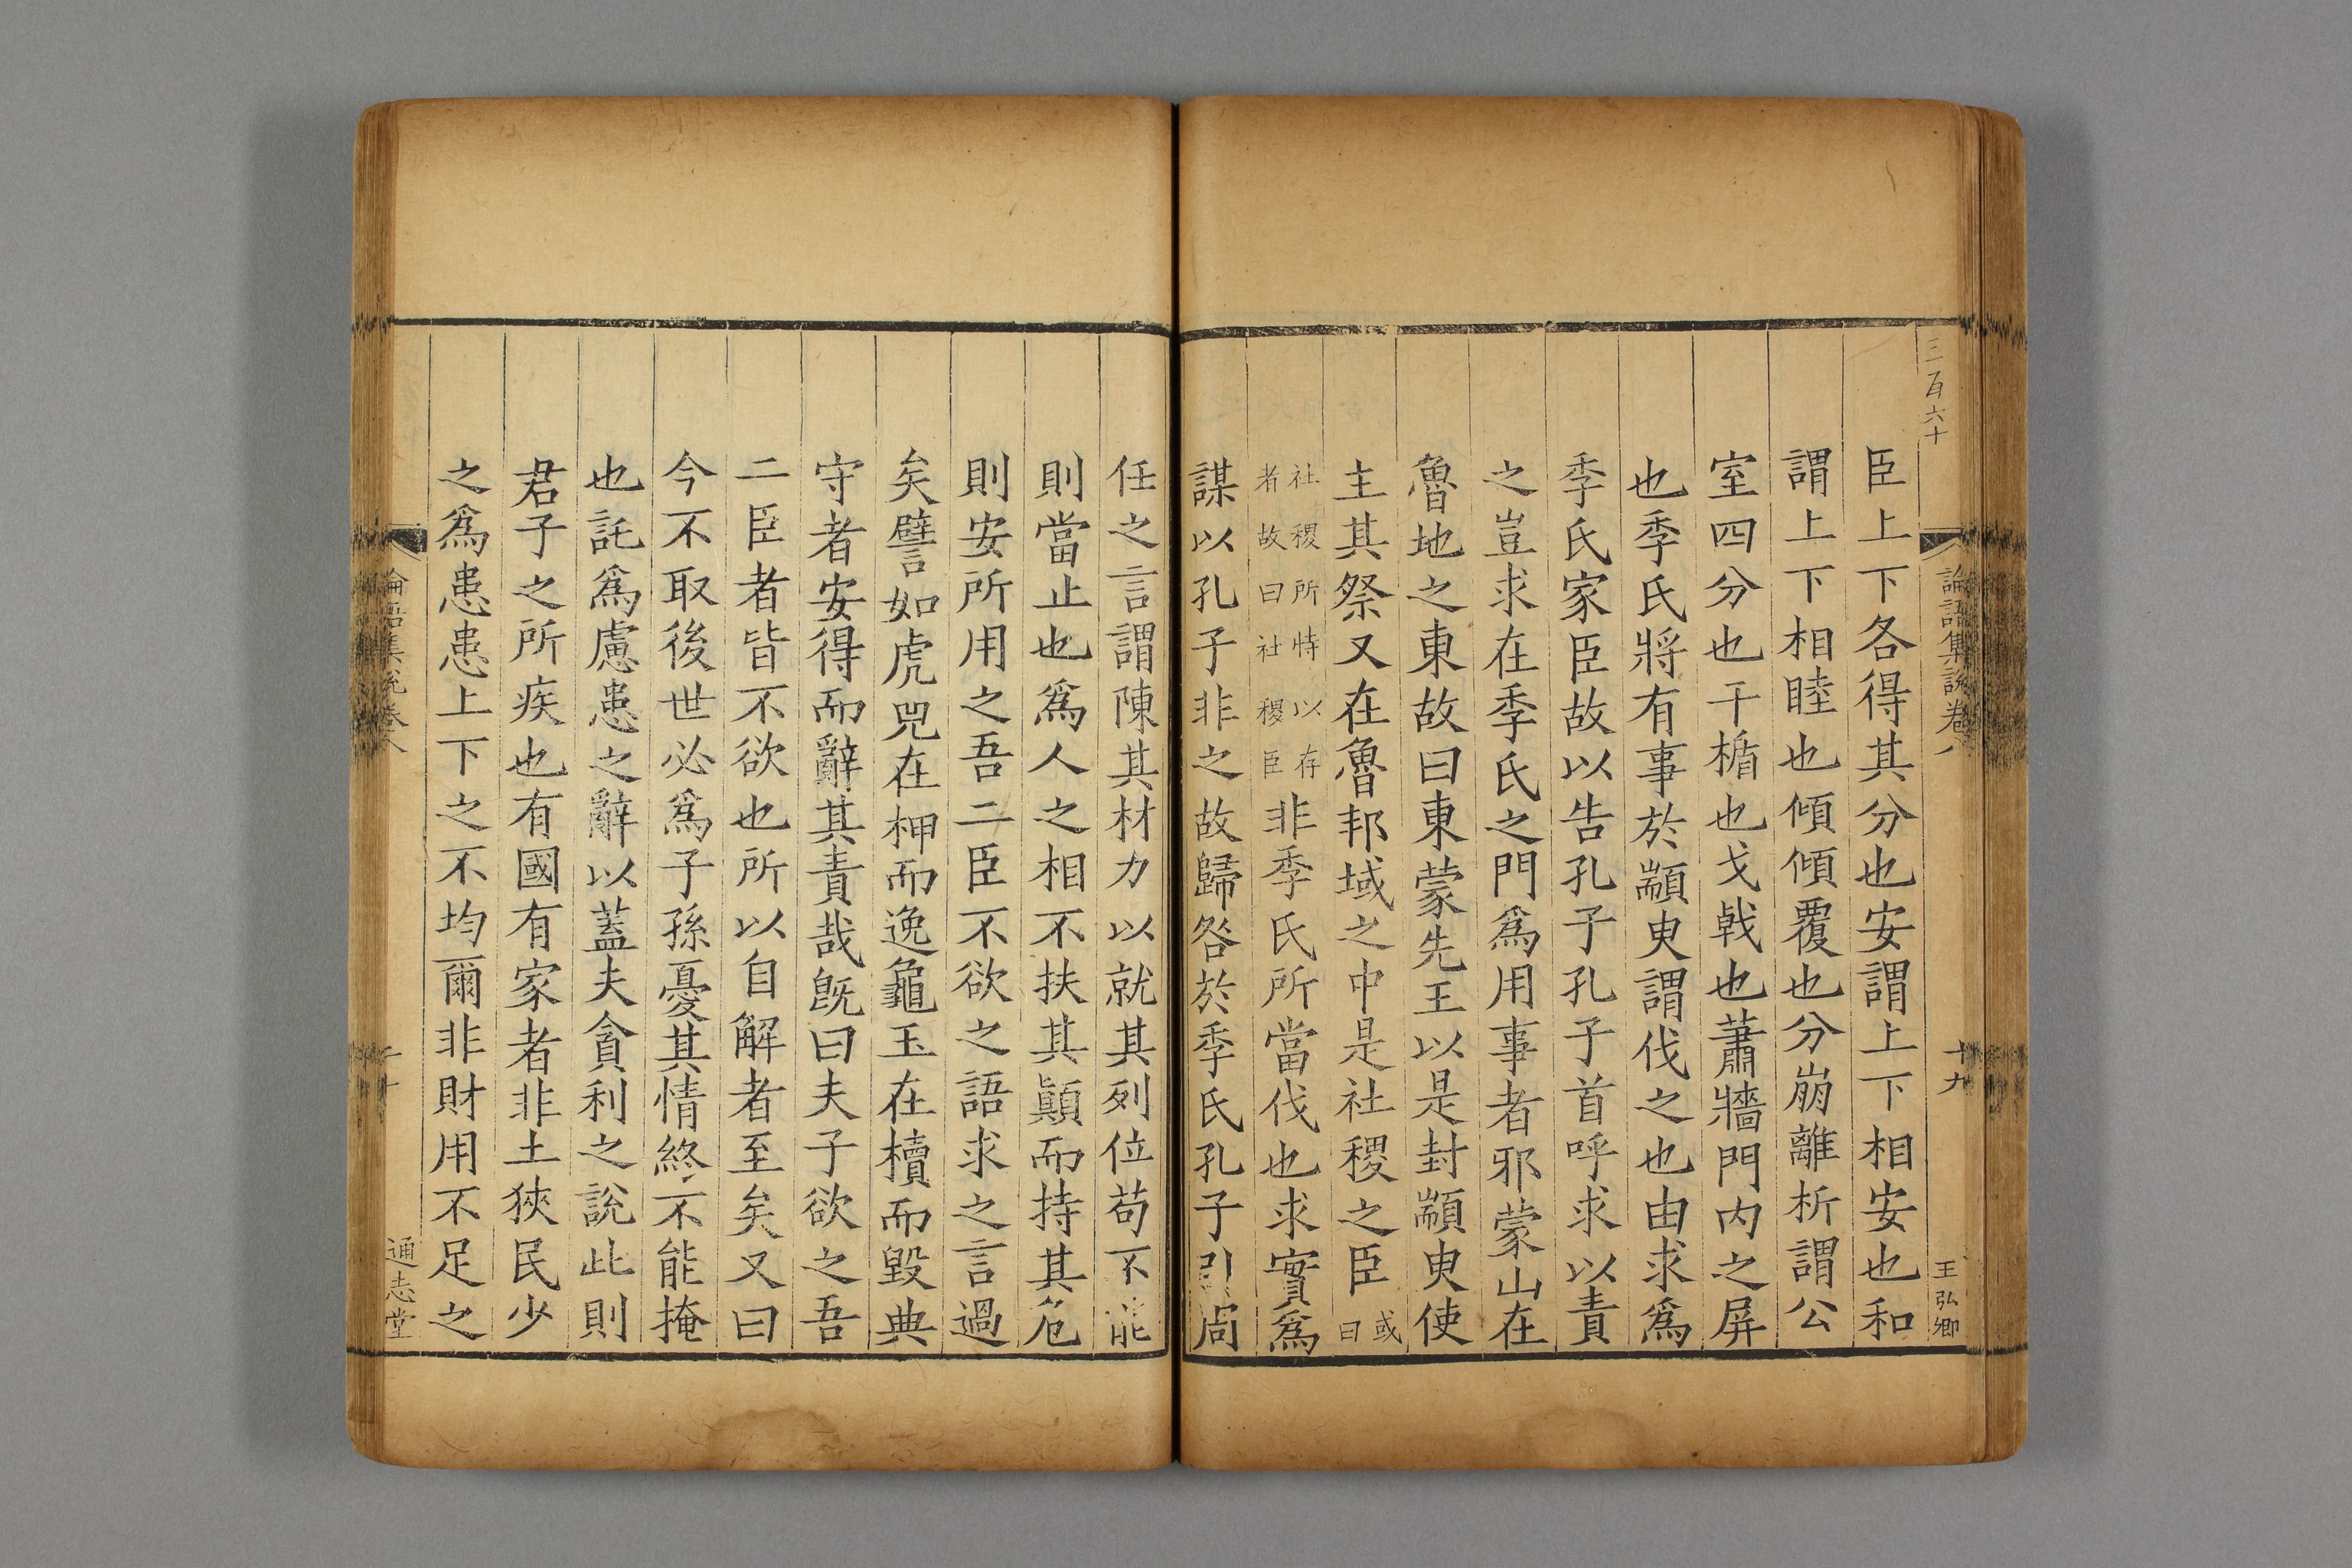 三百六十
論語集說卷八
十九
王弘卿
臣上下各得其分也安謂上下相安也和
謂上下相睦也傾傾覆也分崩離析謂公
室四分也干楯也戈戟也蕭牆門内之屏
也季氏將有事於顓臾謂伐之也由求為
季氏家臣故以告孔子孔子首呼求以責
之豈求在季氏之門爲用事者邪蒙山在
魯地之東故曰東蒙先王以是封顓臾使
主其祭又在魯邦域之中是社稷之臣或曰
社稷所恃以存者故曰社稷臣非季氏所當伐也求實爲
謀以孔子非之故歸咎於季氏孔子引周
任之言謂陳其材力以就其列位苟不能
則當止也爲人之相不扶其顚而持其危
則安所用之吾二臣不欲之語求之言過
矣譬如虎兕在柙而逸龜玉在櫝而毀典
守者安得而辭其責哉旣曰夫子欲之吾
二臣者皆不欲也所以自解者至矣又曰
今不取後世必爲子孫憂其情終不能掩
也託爲慮患之辭以蓋夫貪利之說此則
君子之所疾也有國有家者非土狹民少
之爲患患上下之不均爾非財用不足之
論語集說卷八
二十
通志堂